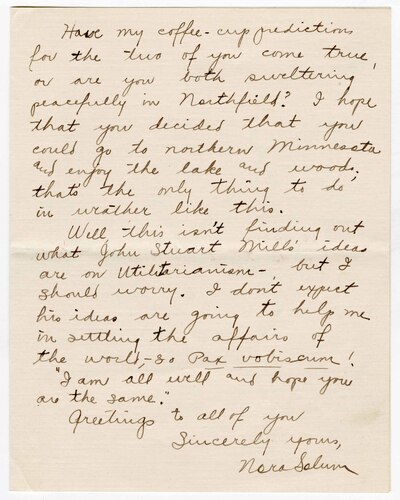 Have my coffee-cup predictions
for the two of you come true,
or are you both sweltering
peacefully in Northfield? I hope
that you decided that you
could go to northern Minnesota
and enjoy the lake and woods;
that's the only thing to do
in weather like this.
Well this isn't finding out
what John Stuart Mill's ideas
are on Utilitarianism-, but I
should worry. I don't expect
his ideas are going to help me
in settling the affairs of
the world-so Pax vobiscum!
"I am all well and hope you
are the same."
Greetings to all of you
Sincerely yours,
Nora Solum